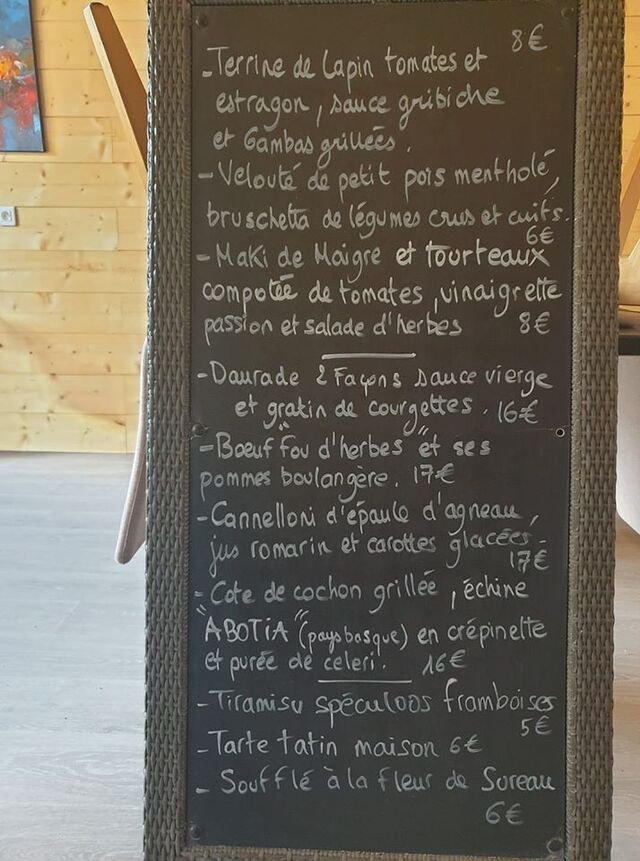 8€
-Terrine de lapin tomates et
estragon, sauce gribiche
et Gambas grillées.
-Velouté de petit pois mentholé,
bruschetta de légumes crus et cuits.
6€
-Maki de Maigre et tourteaux
compotée de tomates, vinaigrette
passion et salade d'herbes 8€
-Daurade 2 Façons sauce vierge
et gratin de courgettes. 16€
-Boeuf "fou d'herbes" et ses
pommes boulangère. 17€
-Cannelloni d'épaule d'agneau,
jus romarin et carottes glacées.
17€
-Cote de cochon grillée, échine
"ABOTIA" (pays basque) en crépinette
et purée de celeri. 16€
-Tiramisu spéculoos framboises
5€
-Tarte tatin maison 6€
- Soufflé à la fleur de Sureau
6€